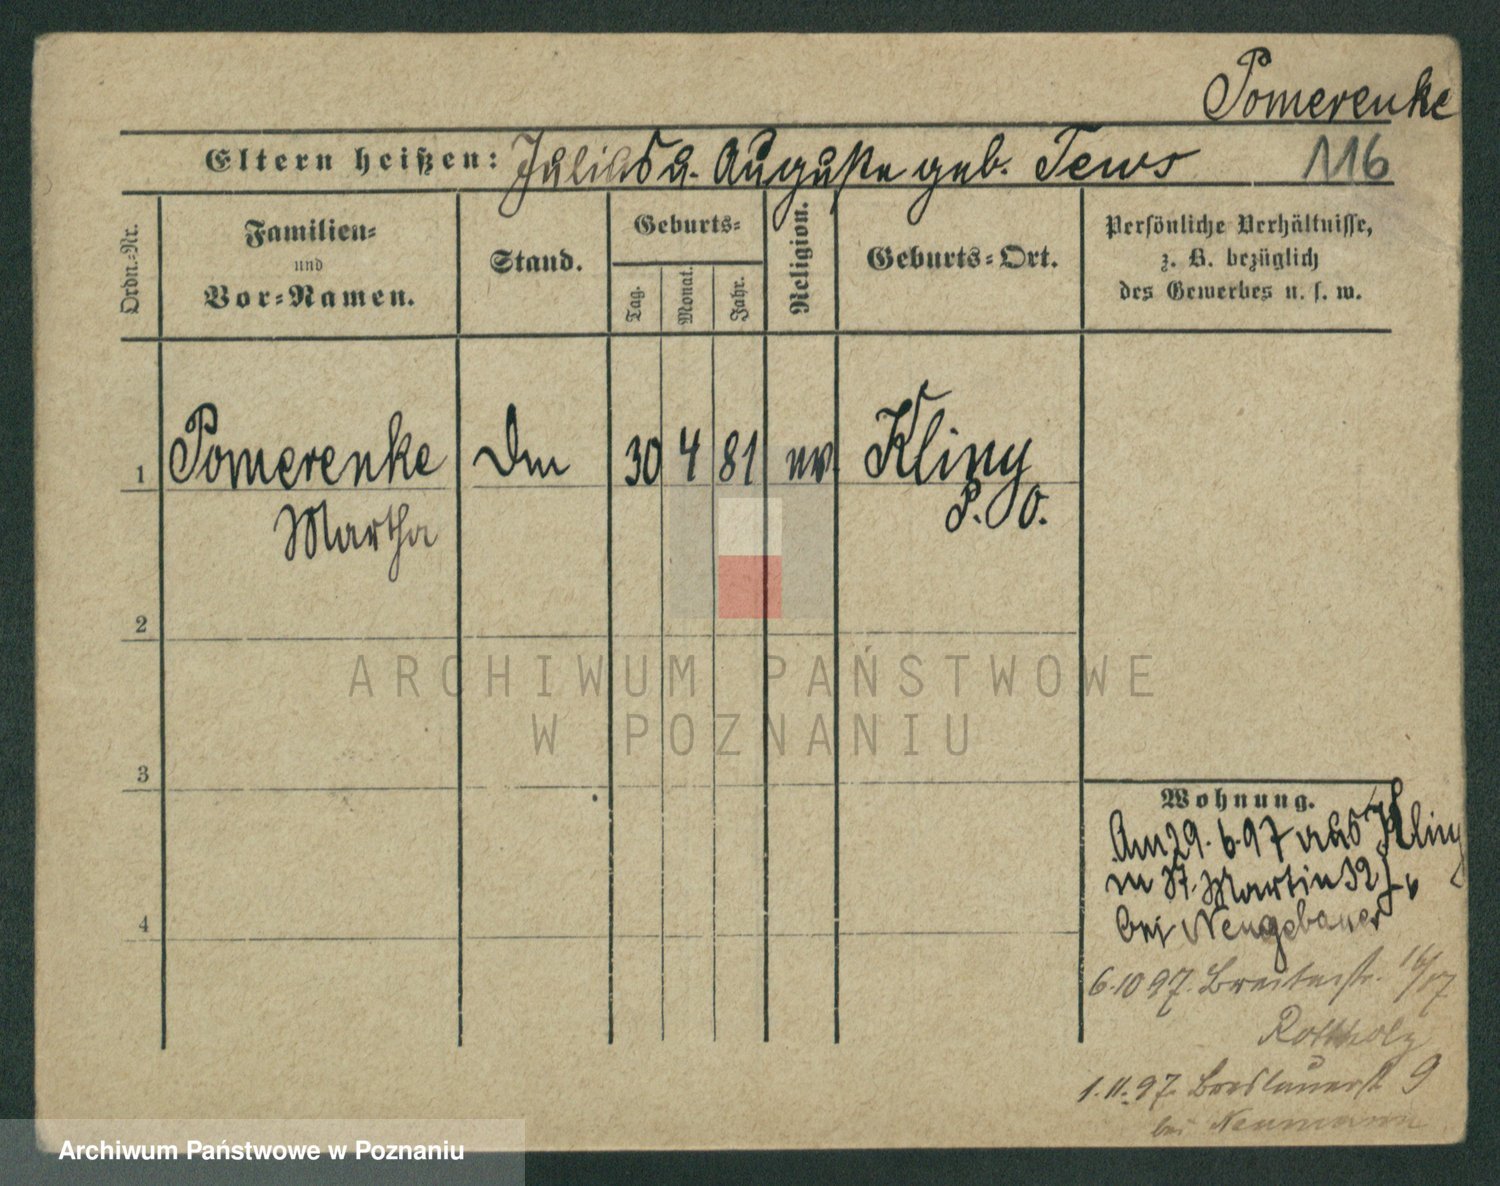 Pomerenke
Eltern heißen: Julius u. Auguste geb. Tews
116
Ordn.-Nr.
Familien-
und
Vor-Namen.
Stand.
Geburts-
Tag.
Monat.
Jahr.
Religion.
Geburts-Ort.
Persönliche Verhältnisse,
z. B. bezüglich
des Gewerbes u. s. w.
1
Pomerenke
30
4
81
ev.
Kliny
P. O.
Martha
2
ARCHIWUM PAŃSTWOWE
W POZNANIU
3
Wohnung.
Am 29. 6. 97 aus Kliny
n St. Martin 32
bei Neugebauer
4
6.10 97. Breitestr. 16/17
Rothholz
1. 11. 97. Breslauerst 9
bei Neumann
Archiwum Państwowe w Poznaniu